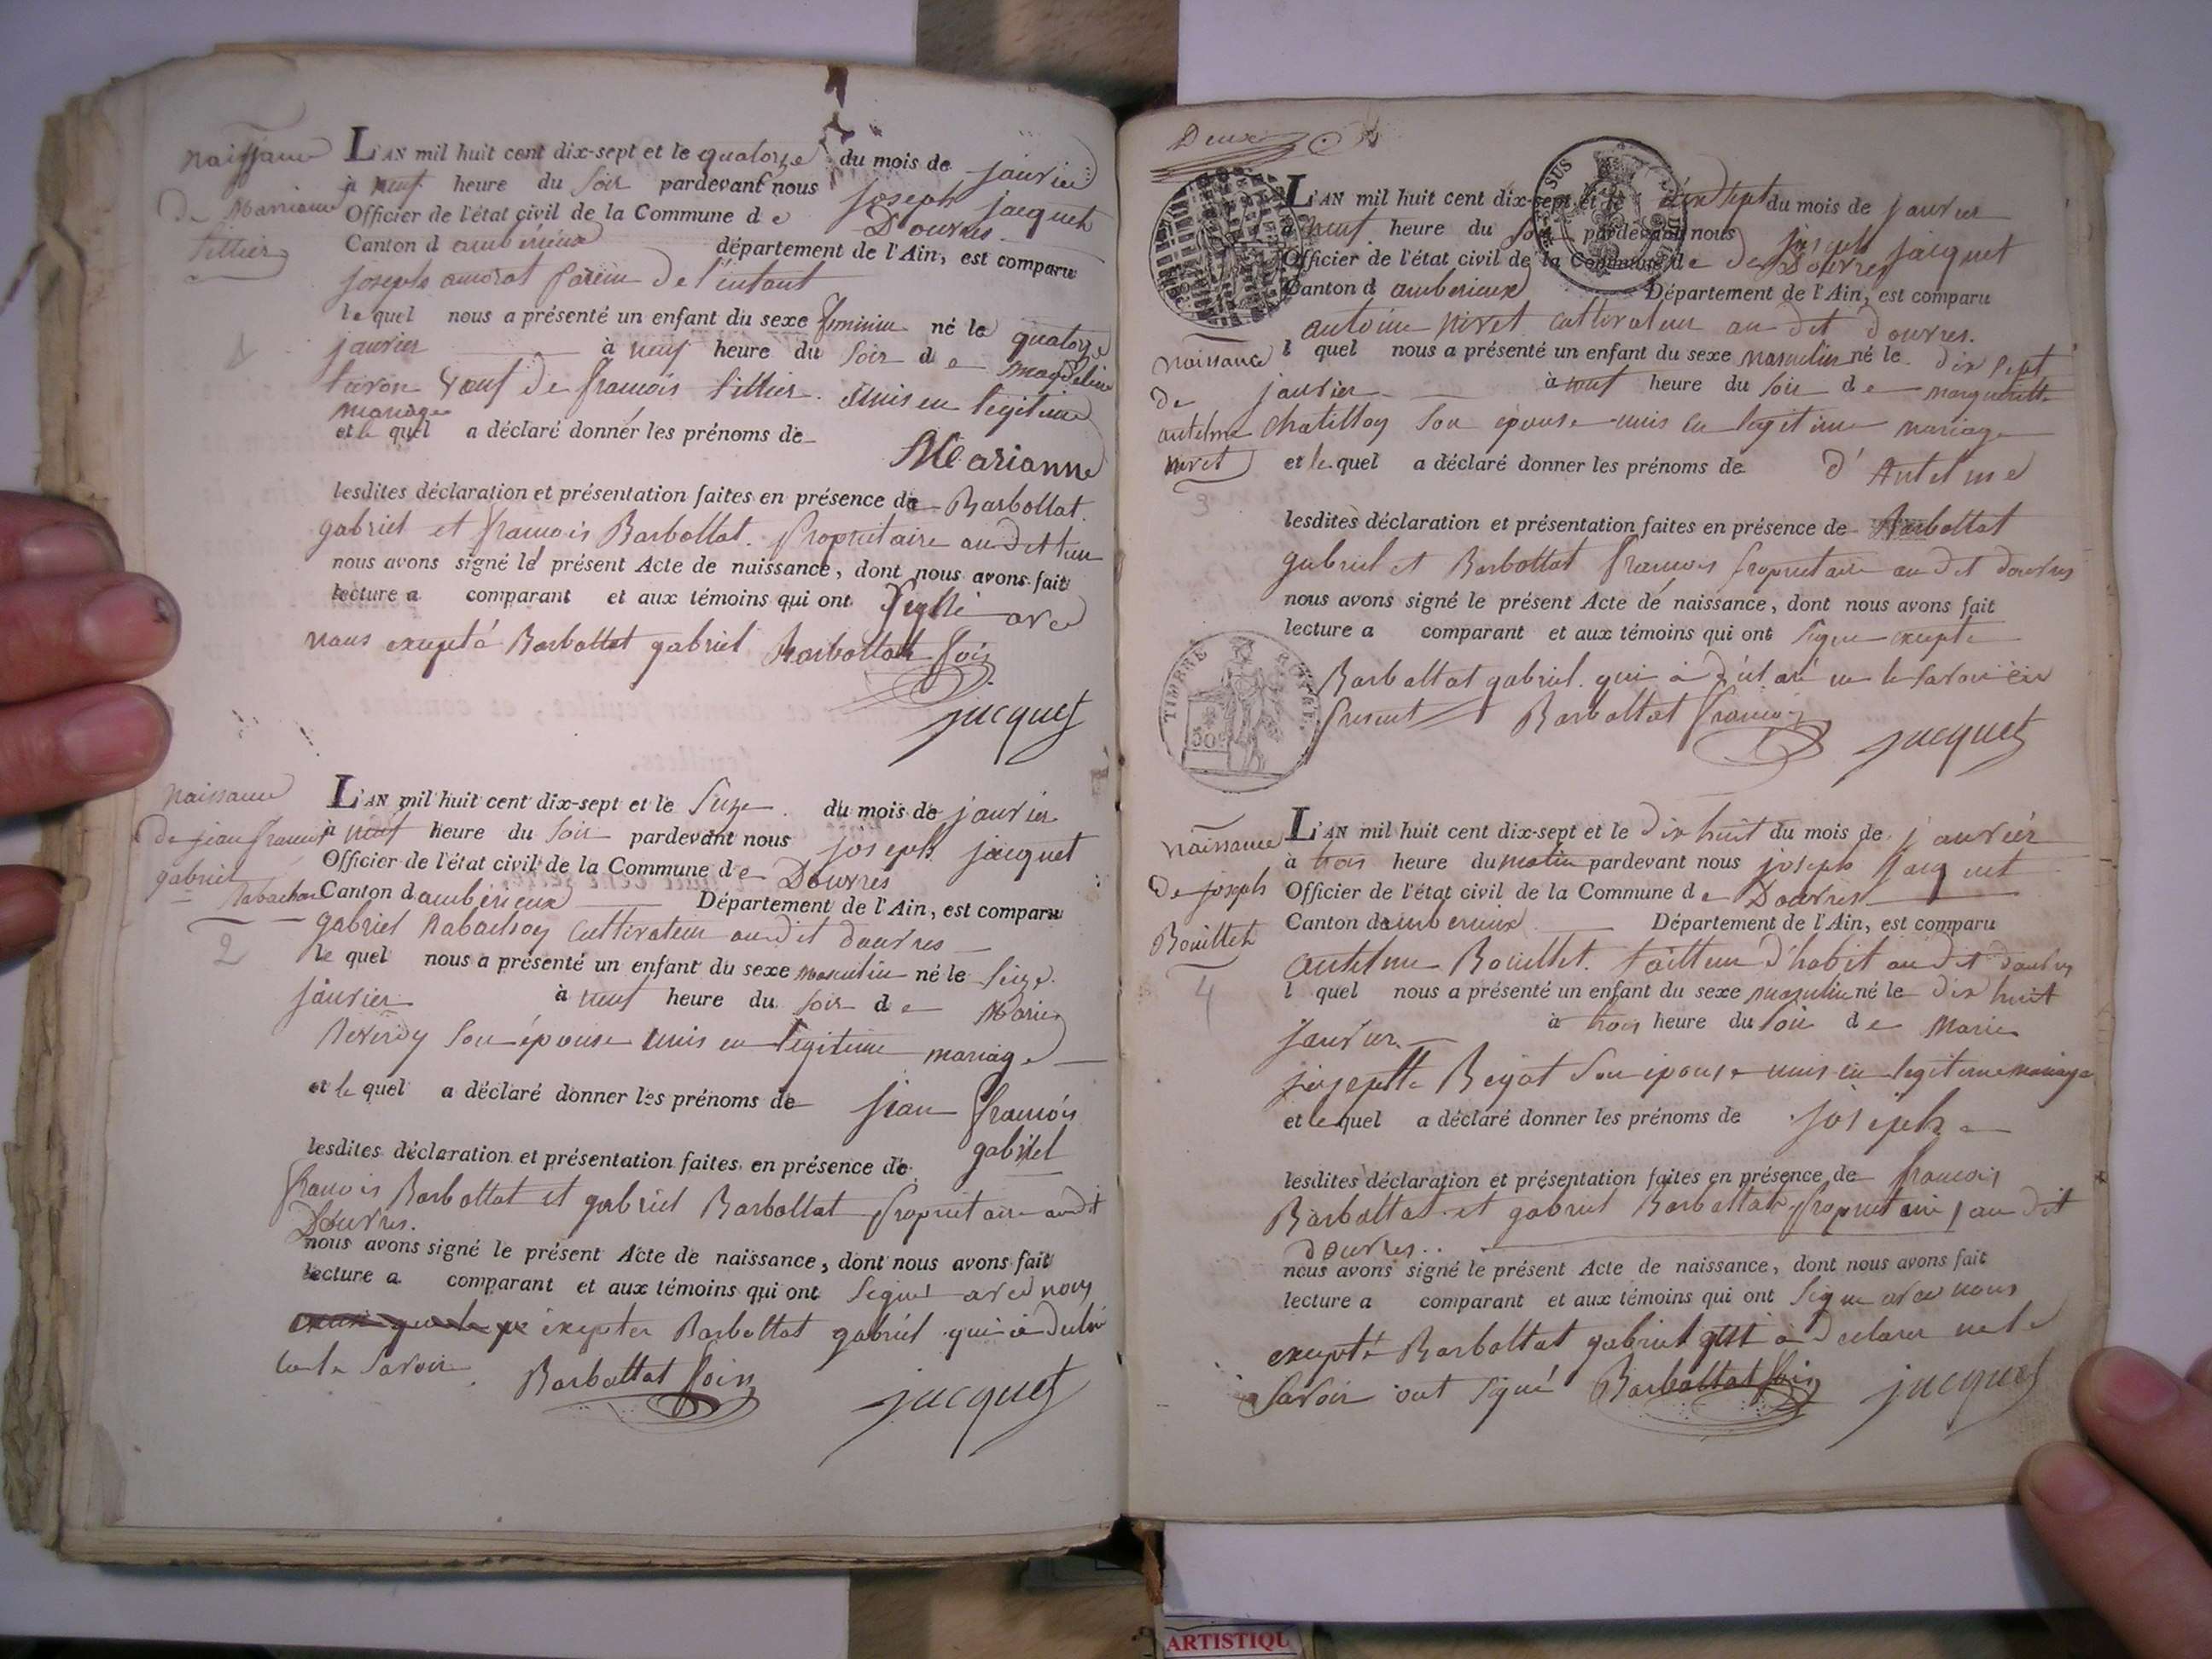 naissance
de Marianne
tillier
1
L'AN mil huit cent dix-sept et le quatorze du mois de janvier
à neuf heure du soir pardevant nous joseph jacquet
Officier de l'état civil de la Commune de Douvres
Canton d ambérieux département de l'Ain, est comparu
joseph amorat parein de l'enfant
lequel nous a présenté un enfant du sexe feminin né le quatorze
janvier à neuf heure du soir de magdeline
veuf de francois tillier unis en legitime
mariage
et le quel a déclaré donner les prénoms de
Marianne
lesdites déclaration et présentation faites en présence de Barbollat
gabriel et francois Barbollat propriétaire audit lieu
nous avons signé le présent Acte de naissance, dont nous avons fait
lecture a comparant et aux témoins qui ont signé avec
nous excepté Barbollat gabriel Barbollat fois
jacquet
naissance
de jean francois
gabriel
Rabachon
2
L'AN mil huit cent dix-sept et le seize du mois de janvier
à neuf heure du soir pardevant nous joseph jacquet
Officier de l'état civil de la Commune de Douvres
Canton d ambérieux Département de l'Ain, est comparu
gabriel Rabachon cultivateur audit douvres
le quel nous a présenté un enfant du sexe masculin né le seize
janvier à neuf heure du soir de Marie
son épouse unis en legitime mariage
et le quel a déclaré donner les prénoms de jean francois
gabriel
lesdites déclaration et présentation faites en présence de
francois Barbollat et gabriel Barbollat propriétaire audit
Douvres.
nous avons signé le présent Acte de naissance, dont nous avons fait
lecture a comparant et aux témoins qui ont signé avec nous
excepter Barbollat gabriel qui à
le savoir Barbollat fois
jacquet
Deux
L'AN mil huit cent dix-sept et le dix sept du mois de janvier
à neuf heure du soir pardevant nous joseph jacquet
Officier de l'état civil de la Commune de Douvres
Canton d amberieux Département de l'Ain, est comparu
antoine nivet cultivateur audit douvres.
naissance
de
antelme
nivet
3
l quel nous a présenté un enfant du sexe masculin né le dix sept
janvier à neuf heure du soir de margueritte
chatillon son épouse unis en legitime mariage
et le quel a déclaré donner les prénoms de d'Antelme
lesdites déclaration et présentation faites en présence de Barbollat
gabriel et Barbollat francois propriétaire audit douvres
nous avons signé le présent Acte de naissance, dont nous avons fait
lecture a comparant et aux témoins qui ont signé excepté
Barbollat gabriel qui à déclaré ne le savoir
TIMBRE ROYAL
50c
Barbollat francois
jacquet
naissance
de joseph
Bouillet
4
L'AN mil huit cent dix-sept et le dix huit du mois de janvier
à trois heure du matin pardevant nous joseph jacquet
Officier de l'état civil de la Commune de Douvres
Canton d amberieux Département de l'Ain, est comparu
antelme Bouillet tailleur d'habit audit douvres
l quel nous a présenté un enfant du sexe masculin né le dix huit
janvier à trois heure du soir de Marie
josephte Beyat son épouse unis en legitime mariage
et le quel a déclaré donner les prénoms de joseph
lesdites déclaration et présentation faites en présence de francois
Barbollat et gabriel Barbollat propriétaire audit
douvres..
nous avons signé le présent Acte de naissance, dont nous avons fait
lecture a comparant et aux témoins qui ont signé avec nous
excepté Barbollat gabriel qui à declarer ne le
savoir ont signé Barbollat fois jacquet
ARTISTIQU